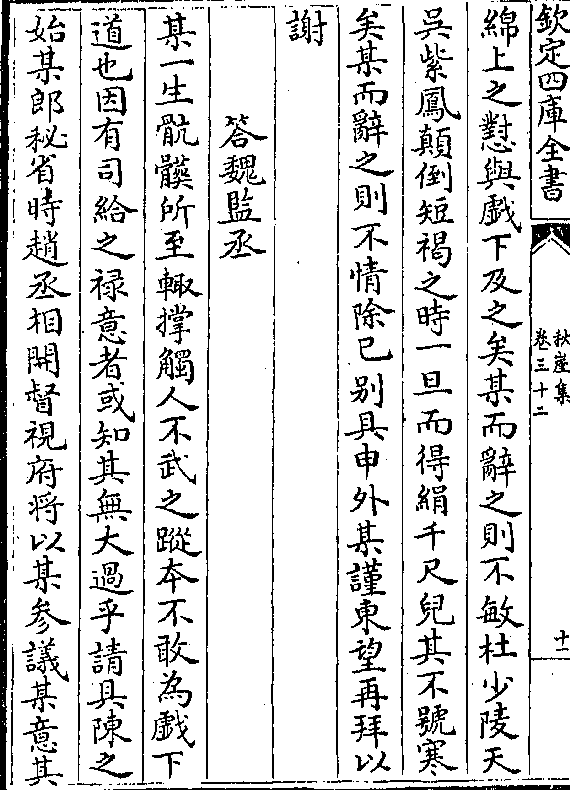 欽定四庫全書
秋崖集
卷三十二
十一
綿上之懟與戲下及之矣某而辭之則不敏杜少陵天
吳紫鳳顛倒短褐之時一旦而得絹千尺兒其不號寒
矣某而辭之則不情除已別具申外某謹東望再拜以
謝
答魏監丞
某一生骯髒所至輒撑觸人不武之蹤本不敢為戲下
道也因有司給之禄意者或知其無大過乎請具陳之
始某郎秘省時趙丞相開督視府将以某參議某意其